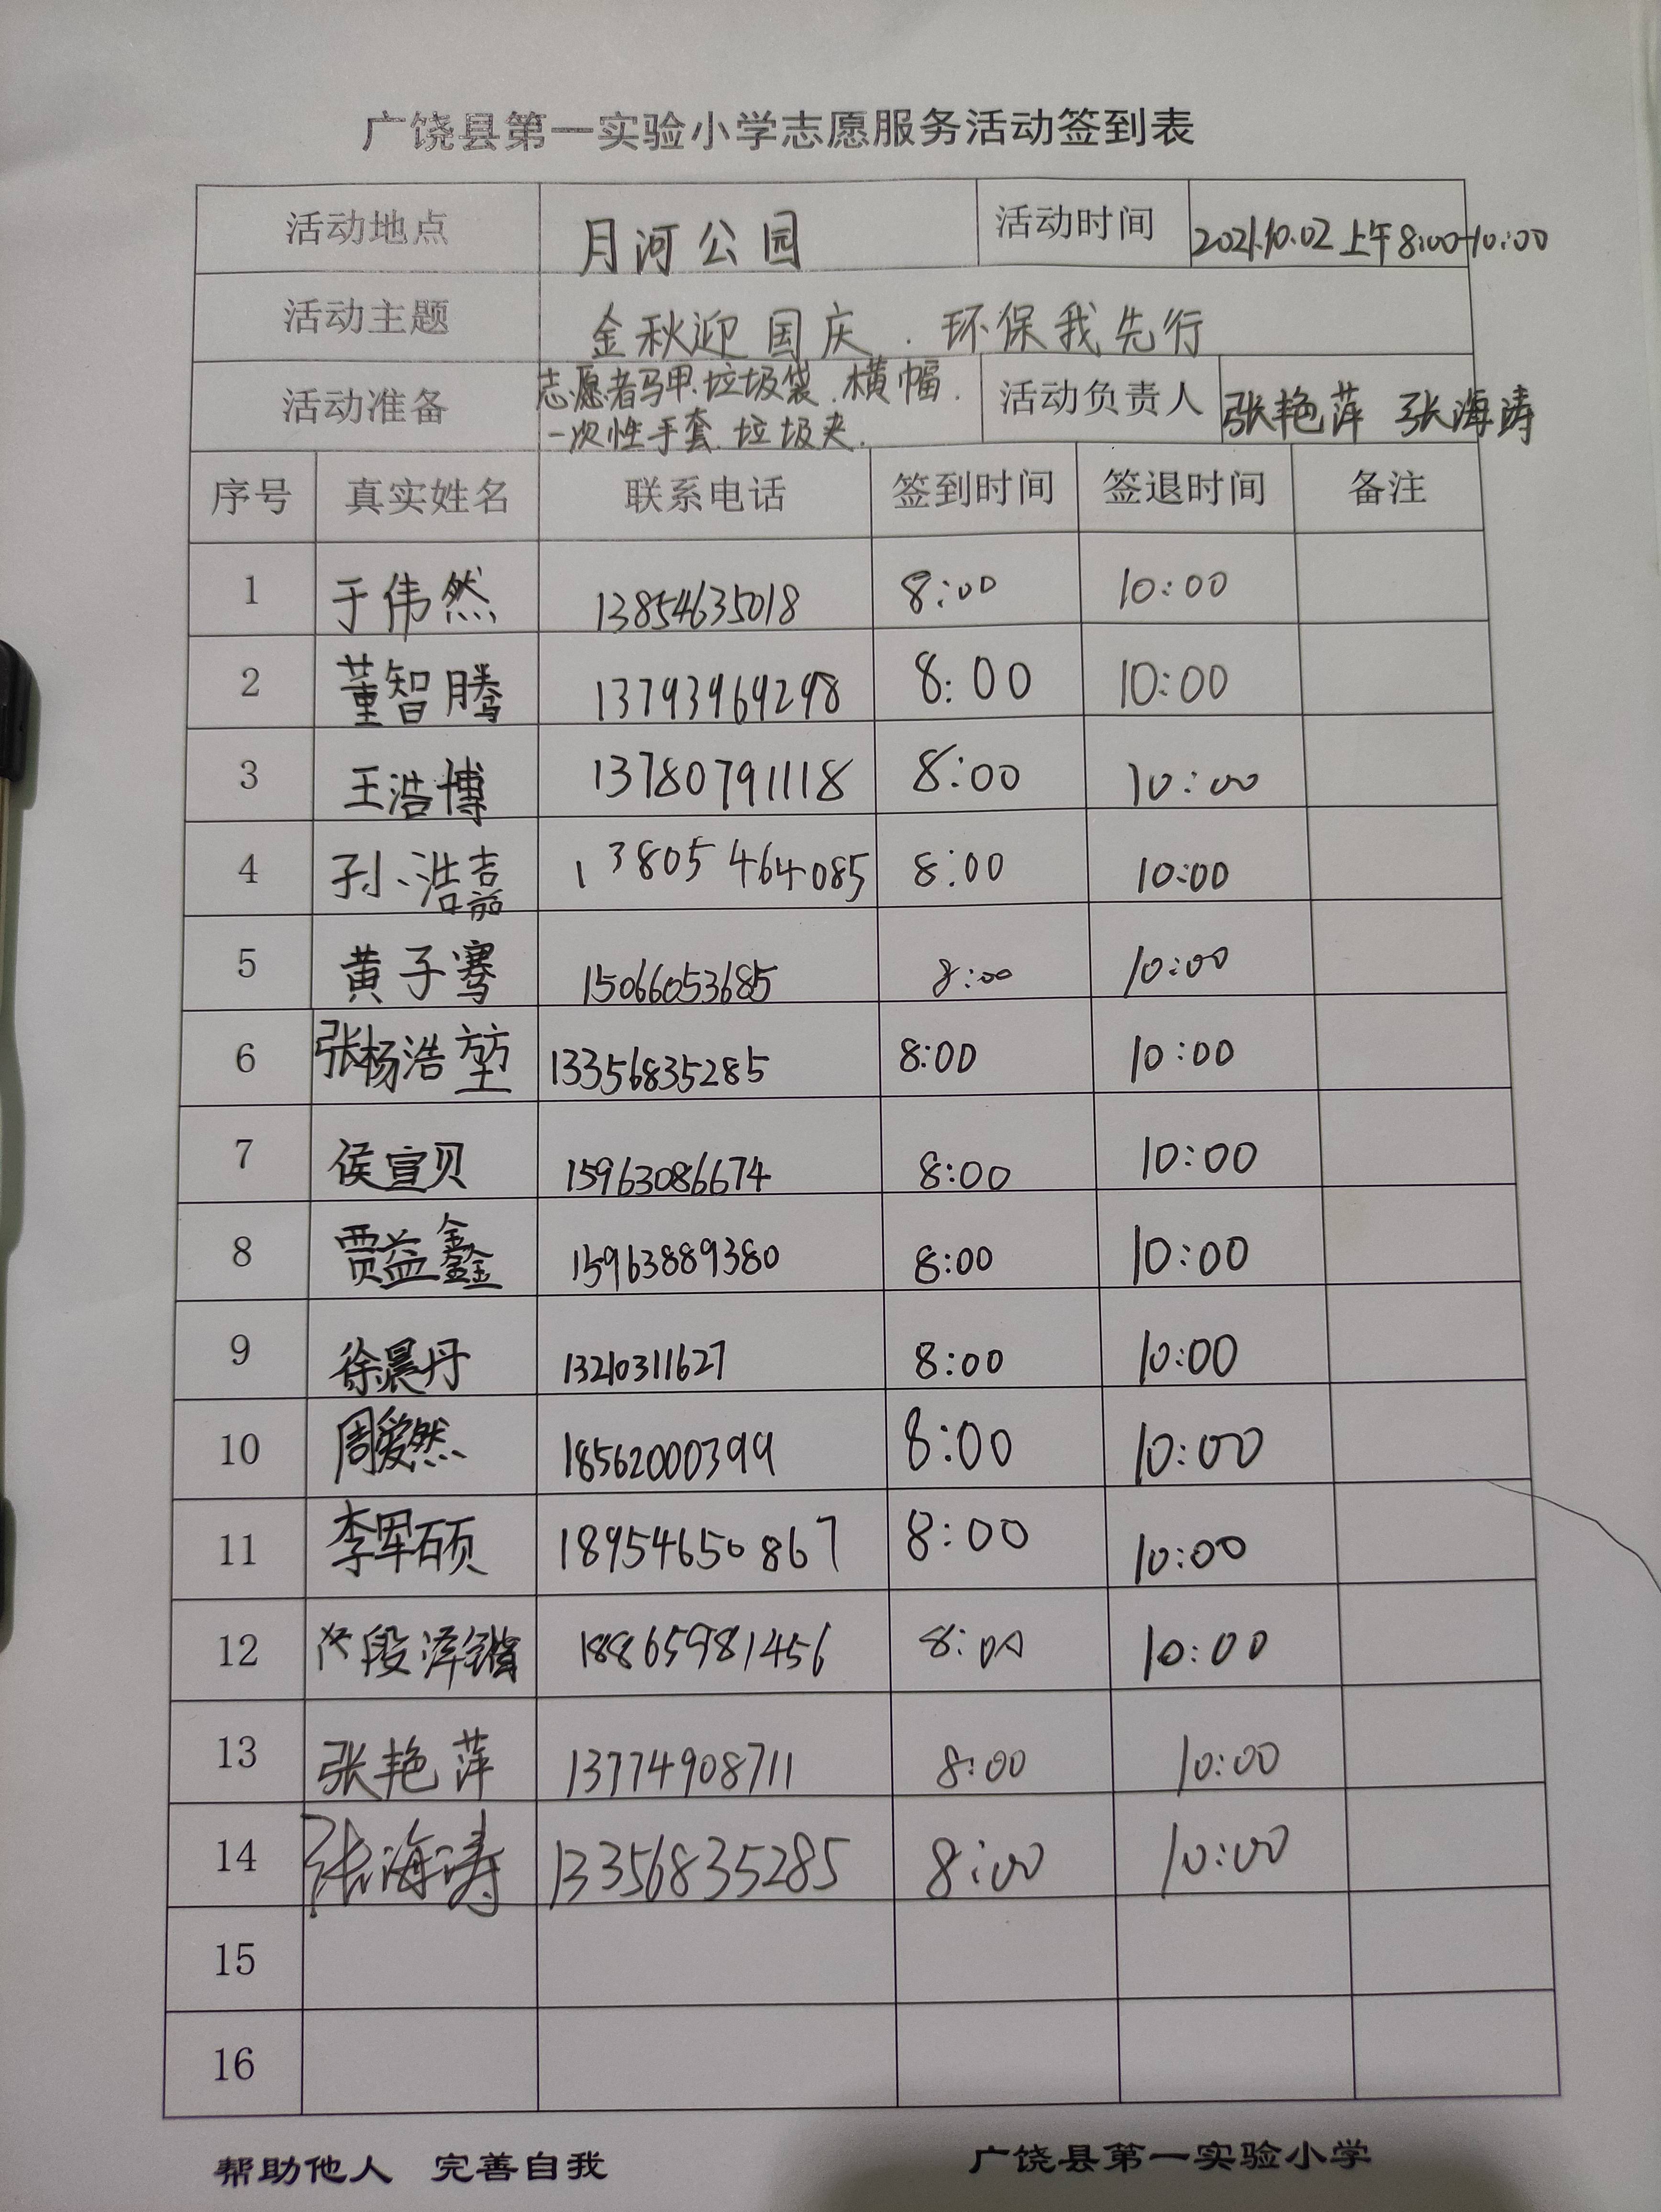 广饶县第一实验小学志愿服务活动签到表
活动地点 月河公园 活动时间 2021.10.02 上午8:00-10:00
活动主题 金秋迎国庆.环保我先行
活动准备 志愿者马甲.垃圾袋.横幅. 活动负责人 张艳萍 张海涛
一次性手套.垃圾夹.
序号 真实姓名 联系电话 签到时间 签退时间 备注
1 于伟然 13854635018 8:00 10:00
2 董智腾 13793969298 8:00 10:00
3 王浩博 13780791118 8:00 10:00
4 孙浩嘉 13805464085 8:00 10:00
5 黄子骞 15066053685 8:00 10:00
6 张杨浩堃 13356835285 8:00 10:00
7 侯宣贝 15963086674 8:00 10:00
8 贾益鑫 15963889380 8:00 10:00
9 徐晨丹 13210311627 8:00 10:00
10 周爱然 18562000399 8:00 10:00
11 李军硕 18954650867 8:00 10:00
12 段泽 18865981456 8:00 10:00
13 张艳萍 13774908711 8:00 10:00
14 张海涛 13356835285 8:00 10:00
15
16
帮助他人 完善自我 广饶县第一实验小学